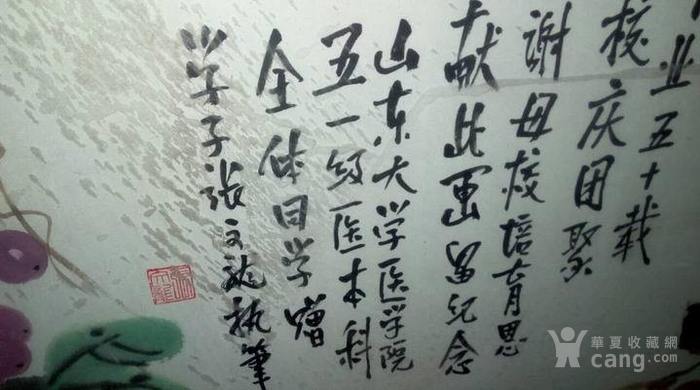 业五十载
校庆团聚
谢母校培育恩
献此画留纪念
山东大学医学院
五一级医本科
全体同学赠
学子张文龙执筆
華夏收藏網
cang.com